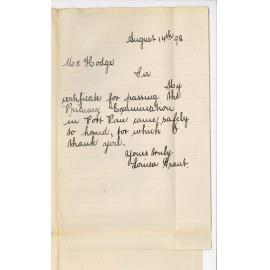 August 14th 98
Mr Hodge
Sir
My
certificate for passing the
Primary Examination
in Port Pirie came safely
to hand, for which I
thank you.
Yours truly
Louisa Grant.